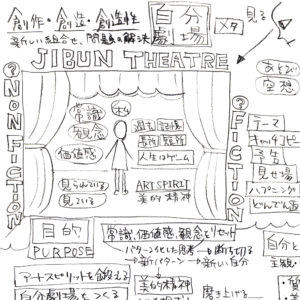 創作・創造・創造性
新しい組合せ、問題の解決
自分
劇場
メタ
見る
JIBUN THEATRE
あそび
空想
?NON FICTION
?FICTION
常識
観念
価値感
私
過去
記憶
人生はゲーム
見られている
見ている
ART SPIRIT
美的精神
テーマ
キャッチコピー
予告
見せ場
ハプニング
どんでん返
目的
PURPOSE
常識、価値感、観念をリセット
パターン化した思考→断ち切る
新パターン→新しい自分
自分と
主観
アートスピリットを鍛える
自分劇場をつくる
美的精神
磨き上げる